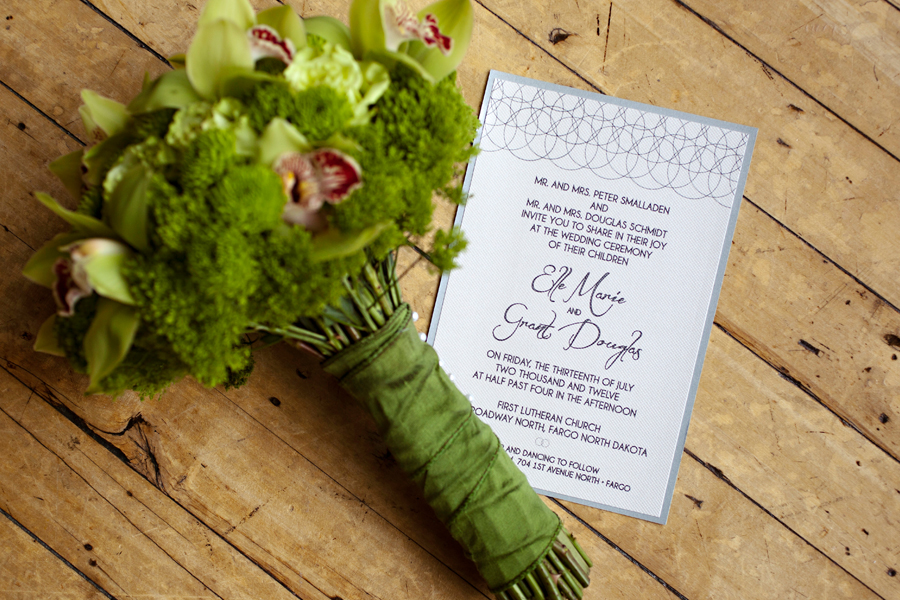 MR. AND MRS. PETER SMALLADEN
AND
MR. AND MRS. DOUGLAS SCHMIDT
INVITE YOU TO SHARE IN THEIR JOY
AT THE WEDDING CEREMONY
OF THEIR CHILDREN
Elle Marie
AND
Grant Douglas
ON FRIDAY, THE THIRTEENTH OF JULY
TWO THOUSAND AND TWELVE
AT HALF PAST FOUR IN THE AFTERNOON
FIRST LUTHERAN CHURCH
ROADWAY NORTH, FARGO NORTH DAKOTA
AND DANCING TO FOLLOW
704 1ST AVENUE NORTH • FARGO